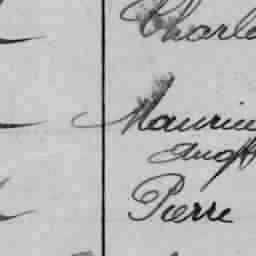 Charle
Mauric
Aug
Pierre